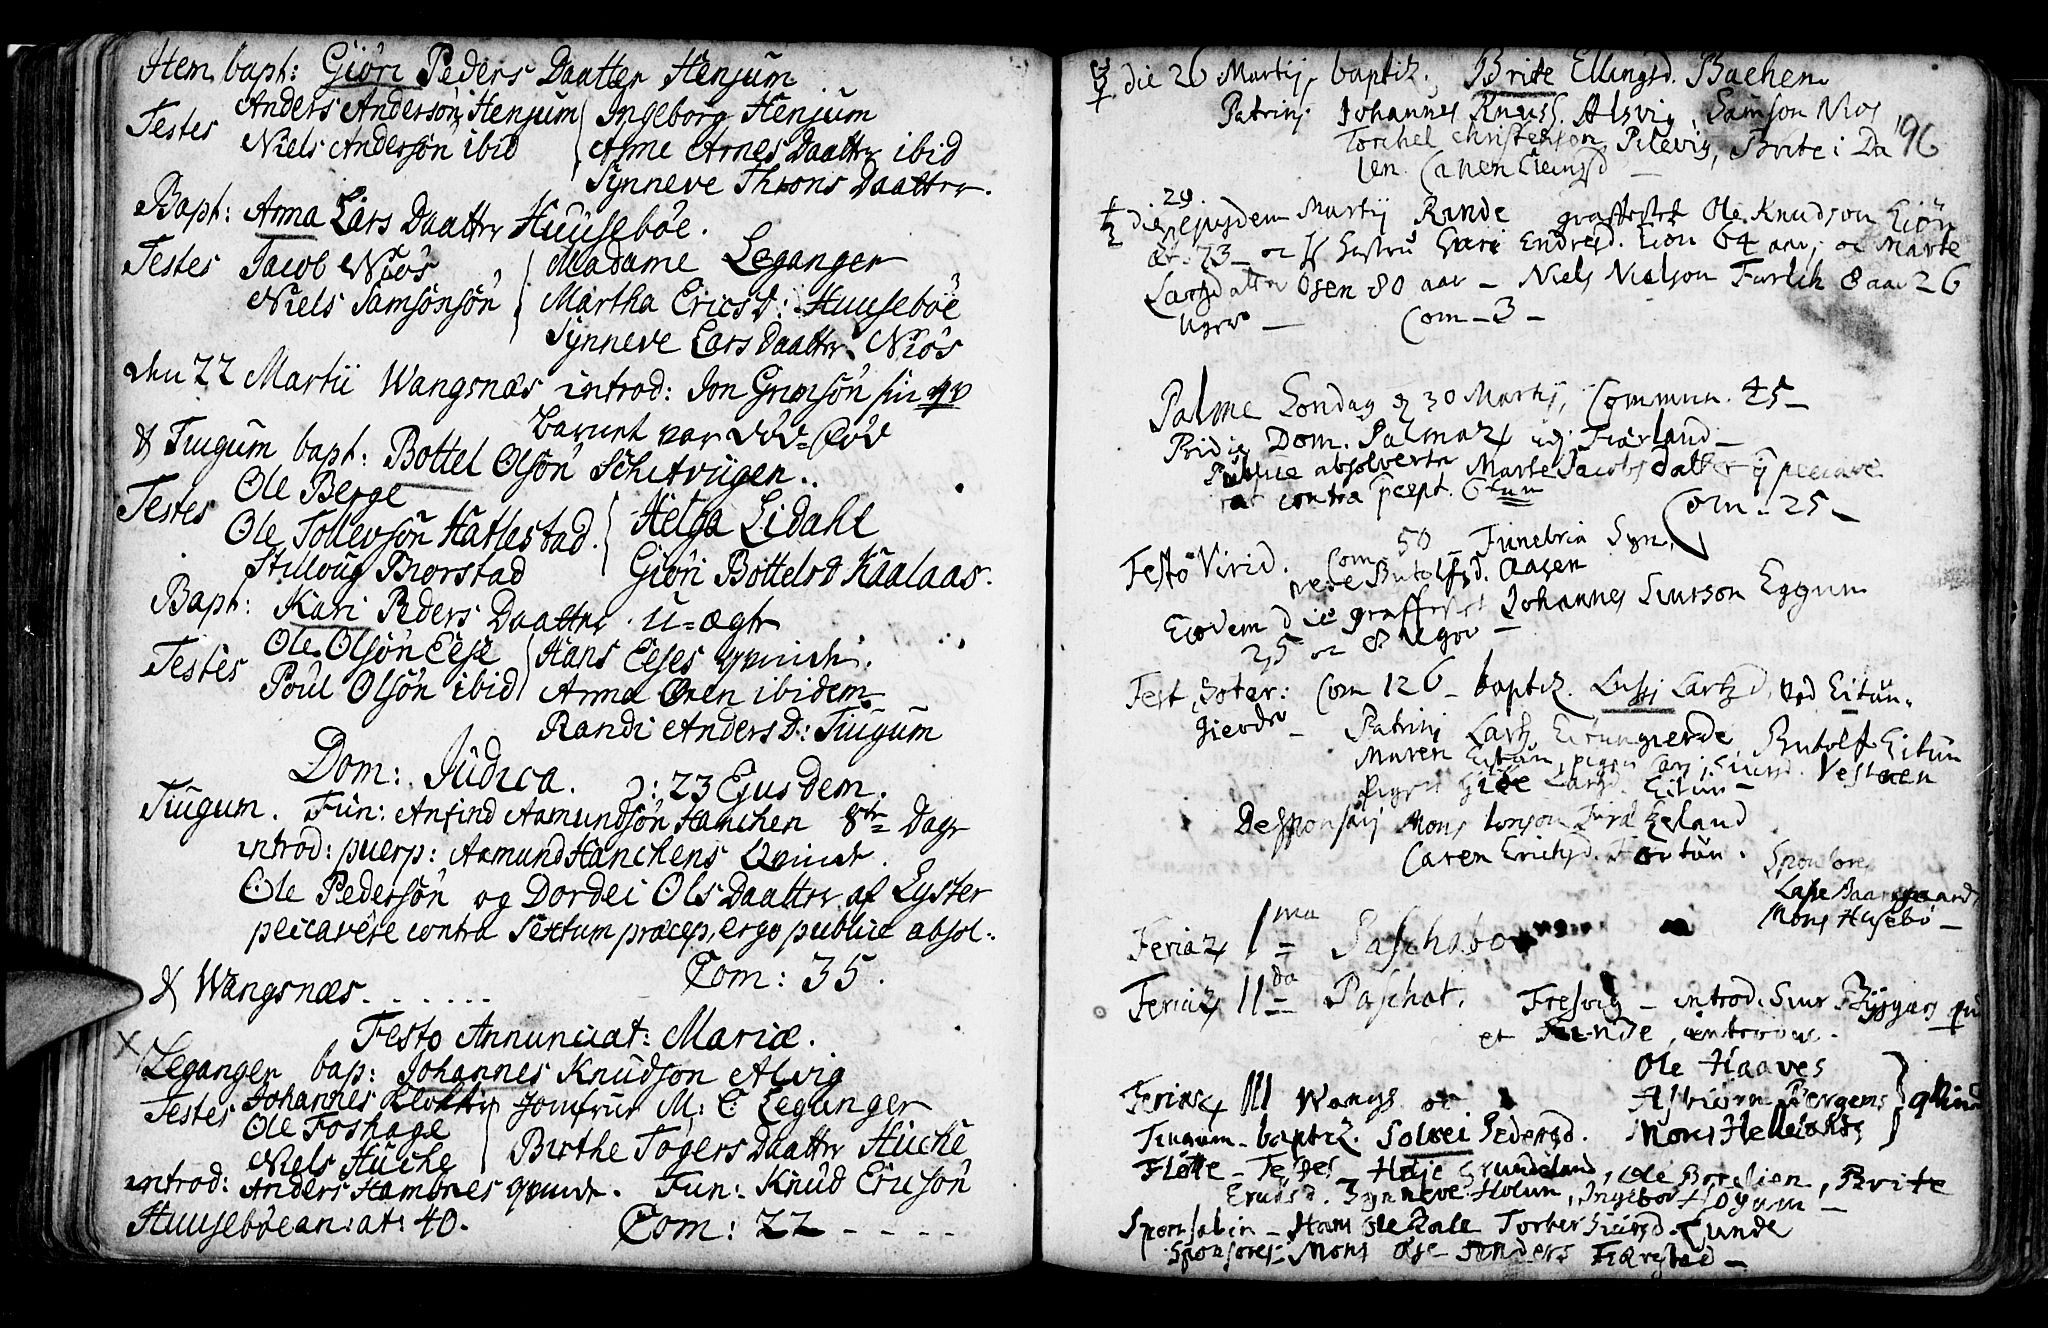 Item bapt: Giöri Peders Daatter Henjum
Testes Anders Andersön Henjum Ingeborg Henjum
Niels Andersön ibid Anne Arnes Daattr ibid
Synneve Throns Daattr.
Bapt: Anna Lars Daattr Huusebøe.
Testes Jacob Niøs Madame Leganger
Niels Samsönsön Martha Ericsd: Huusebøe
Synneve Lars Daattr Niøs
den 22 Martii Wangsnæs introd: Jon Grimsön sin qv
Barnet var död-föd
& Tiugum bapt: Bottel Olsön
Testes Ole Berge Helga Lidahl
Ole Tollevsön Hatlestad. Giöri Bottelsd Kaalaas.
Stilloug Biørstad
Bapt: Kari Peders Daattr u-ægte
Testes Ole Olsön Eese Hans Eeses qvinde.
Poul Olsön ibid Anna Øren ibidem
Randi Anders D: Tiugum
Dom: Judica. ɔ: 23 Ejusdem.
Tiugum. Fun: Anfind Aamundsön Hanchen 8te Dage
introd: puerp: Aamund Hanchens Qvinde.
Ole Pedersön og Dordei Ols Daattr af Lyster
peccavere contra Sextum præcep, ergo publice absol:
Com: 35.
& Wangsnæs . . . . . .
Festo Annunciat: Mariæ.
Leganger bap: Johannes Knudson Alvig
Testes Johannes Jomfrue M: C Leganger
Ole Foshage Birthe Togers Daattr Huche
Niels Huche
introd: Anders Hambres qvinde. Fun: Knud Ericsön
Huusebøe an: at: 40. Com: 22 - - - -
die 26 Martij, baptiz. Brite Ellingsd. Bachen
Patrini Johannes Knuss. Alsvig, Samson Nios 196
Torchel Christenson Pilevig, Brite i Da
len. Caren
die 29 ejusdem Martij Rinde graffestet Ole Knudson Eiön
æt. 73 - oc hs hustru Gari Endresd. Eiön 64 aar, oc Marte
Larsdatter Øsen 80 aar - Niels Nielson 8 aar 26
uger - Com - 3 -
Palme Søndag d 30 Martij, Commun. 45 -
Pridie Dom. Palmar udj Fiærland -
Publice absolverta Marte Jacobs datter q peccave
rat contra præpt. 6tum Com - 25 -
Festo Virid. Com 50 Funebria Syn
neve Butolfsd. Aasen
Eodem die graffestet Johannes Siurson Eggum
25 oc 8 uger -
Fest. Soter: Com 126 - baptiz. Larsd, ved Eitun-
gierde - Patrini Lars Eitungierde, Butolf Eitun
Maren Eitun,
Eitun -
Desponsatj Mons
Caren Erichsd. Sponsores
Mons Husebø -
Feriar Ima Paschatos
Feriar IIda Paschat. Fresvig - introd. Siur qu
et Rinde, introduc.
Ole Haaves
Feriar III Wangs oc Asbiörn Bergems qvind
Tiugum - baptiz. Solvei Pedersd. Mons Hellelands
Testes , Brite
Synneve Holum, Ingebor Hogum -
Sponsalia - Hans Torber Siursd. Lunde
Sponsores: Mons Anders Farestad -